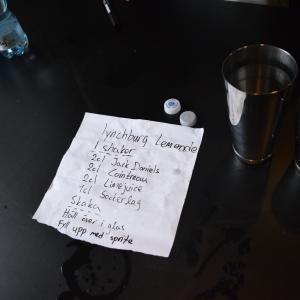 lynchburg Lemonade
1 shaker
2cl Jack Daniels
2cl Cointreau
2cl Limejuice
1cl Sockerlag
Skaka
Häll över i glas
Fyll upp med sprite